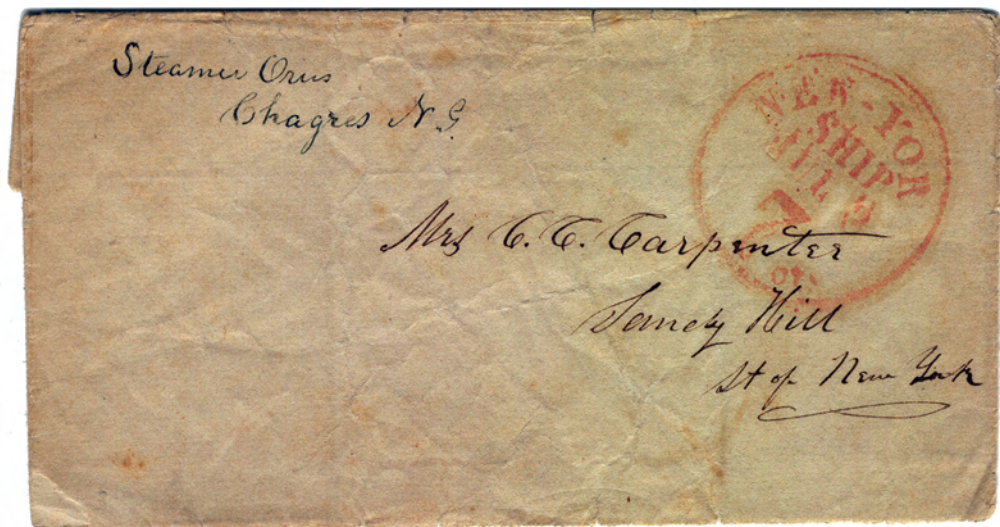 Steamer Orus
Chagres N.G
NEW-YOR
SHIP
JUL
7
cts
Mrs C. C. Carpenter
Sandy Hill
St of New York